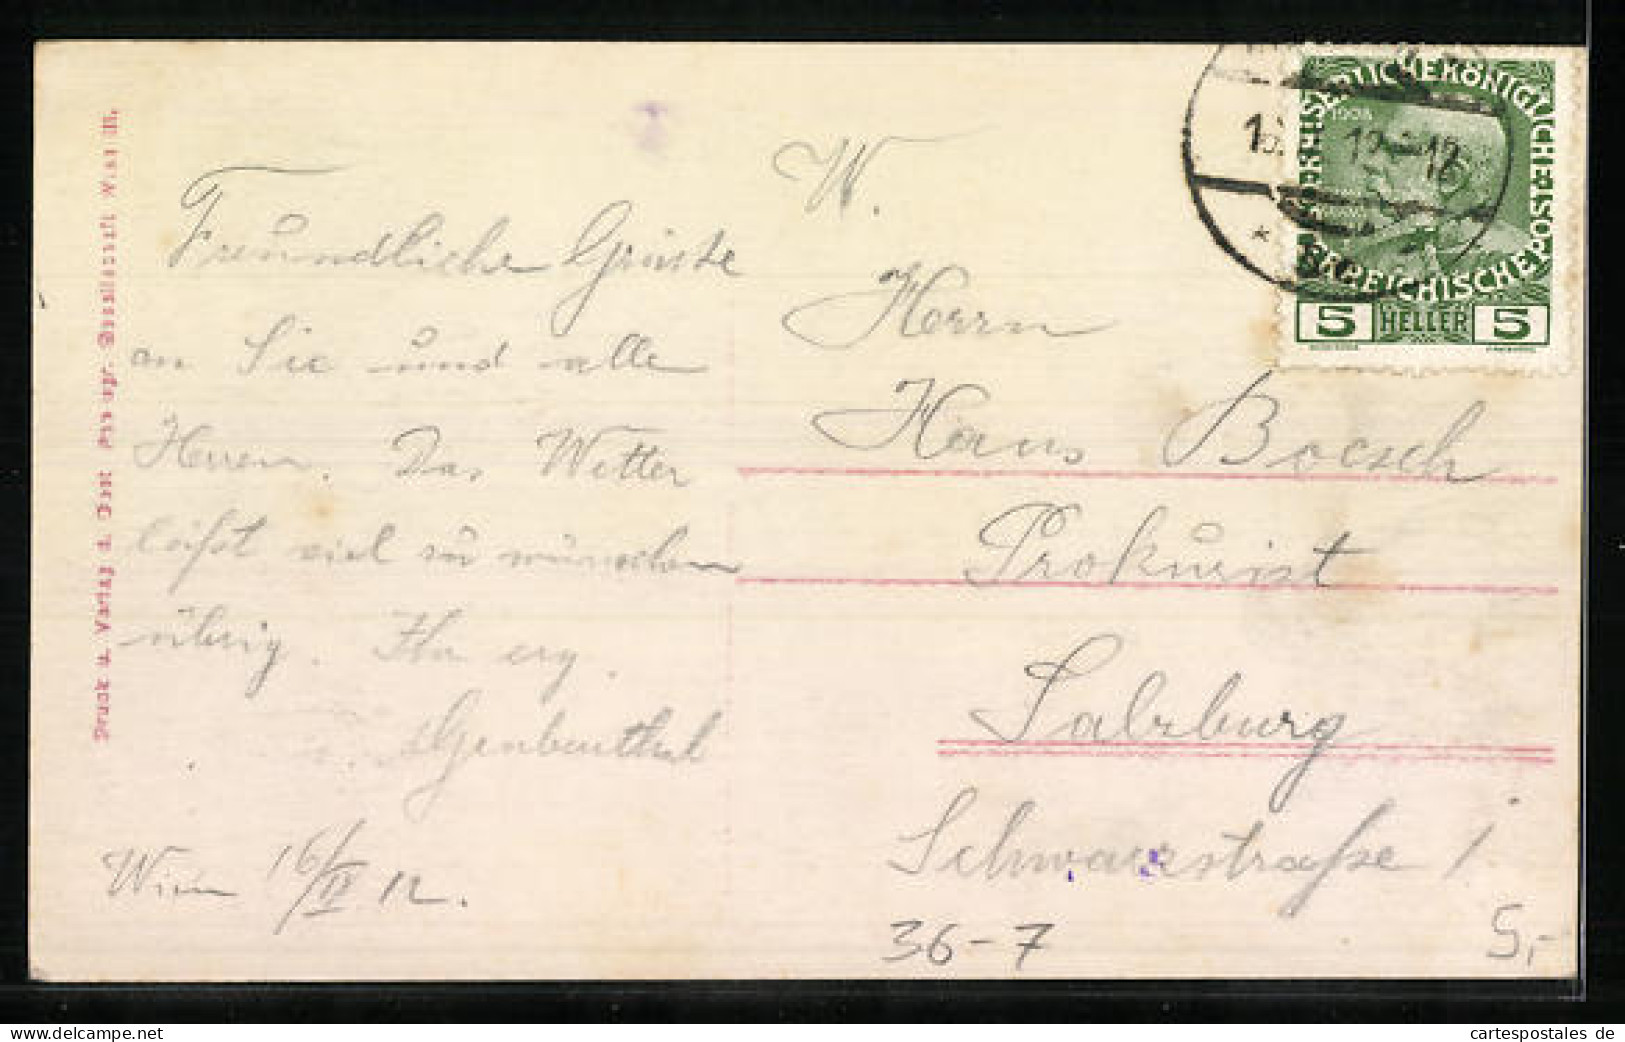 Freundliche Grüsse
an Sie und alle
Herren. Das Wetter
läßt viel zu wünschen
übrig. Ihr erg.
Wien 16/II 12.
W.
Herrn
Hans Boesch
Prokurist
Salzburg
Schwarzstraße 1
36-7
5,-
Druck u. Verlag d. Öst.
Gesellschaft Wien III.
KAISERLICHE KÖNIGLICHE ÖSTERREICHISCHE POST
1908
5 HELLER 5
12-12
cartespostales de